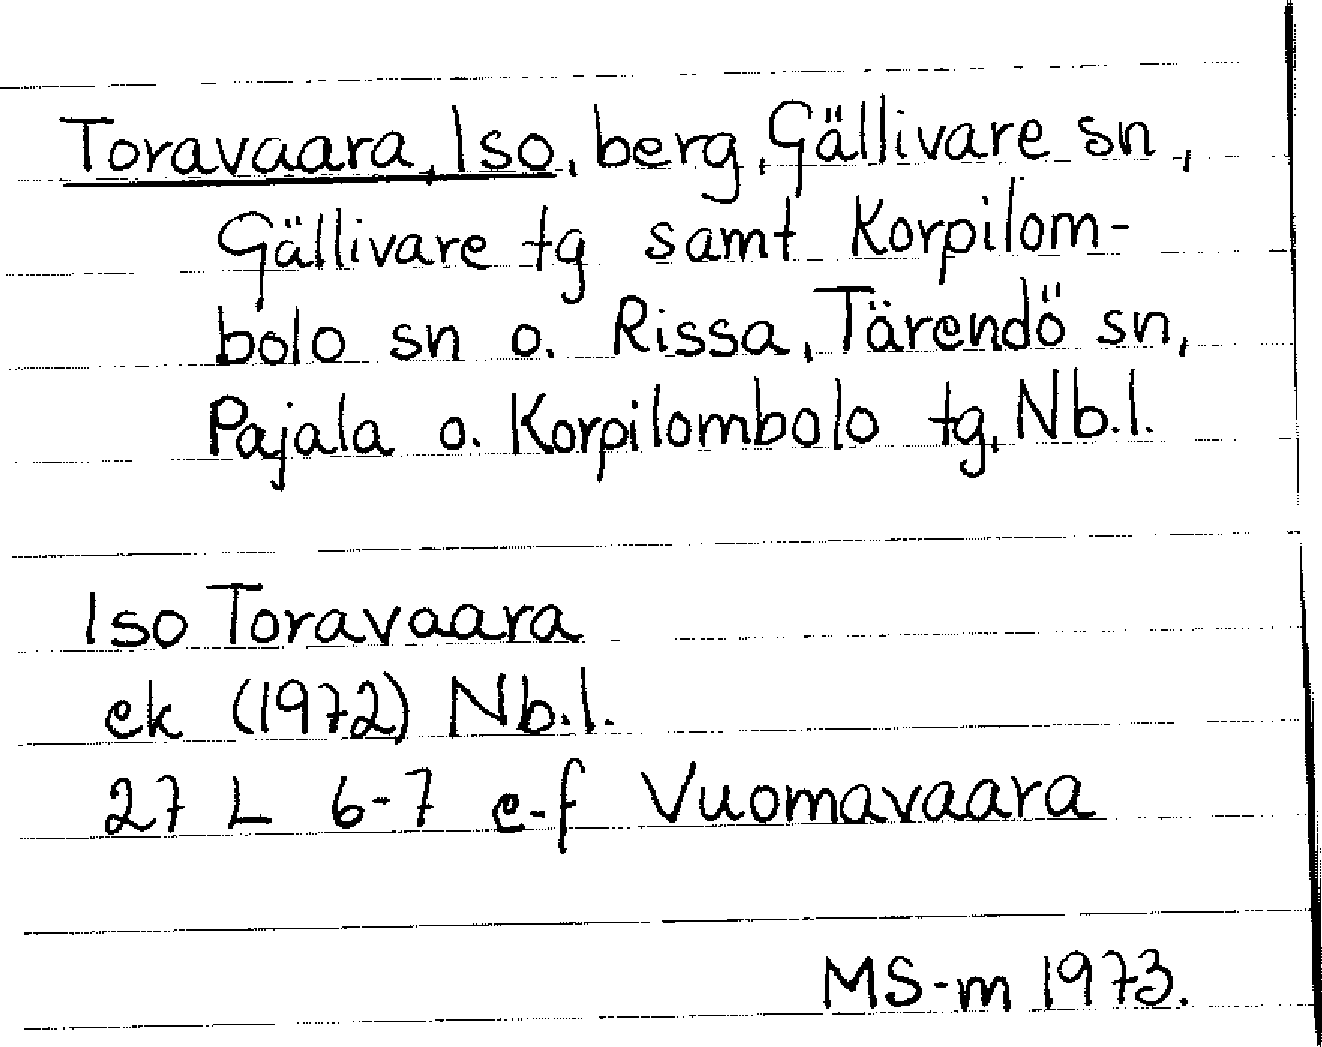 Toravaara, Iso, berg, Gällivare sn,
Gällivare tg samt Korpilom-
bolo sn o. Rissa, Tärendö sn,
Pajala o. Korpilombolo tg, Nb.l.
Iso Toravaara
ek (1972) Nb.l.
27 L 6-7 e-f Vuomavaara
MS-m 1973.